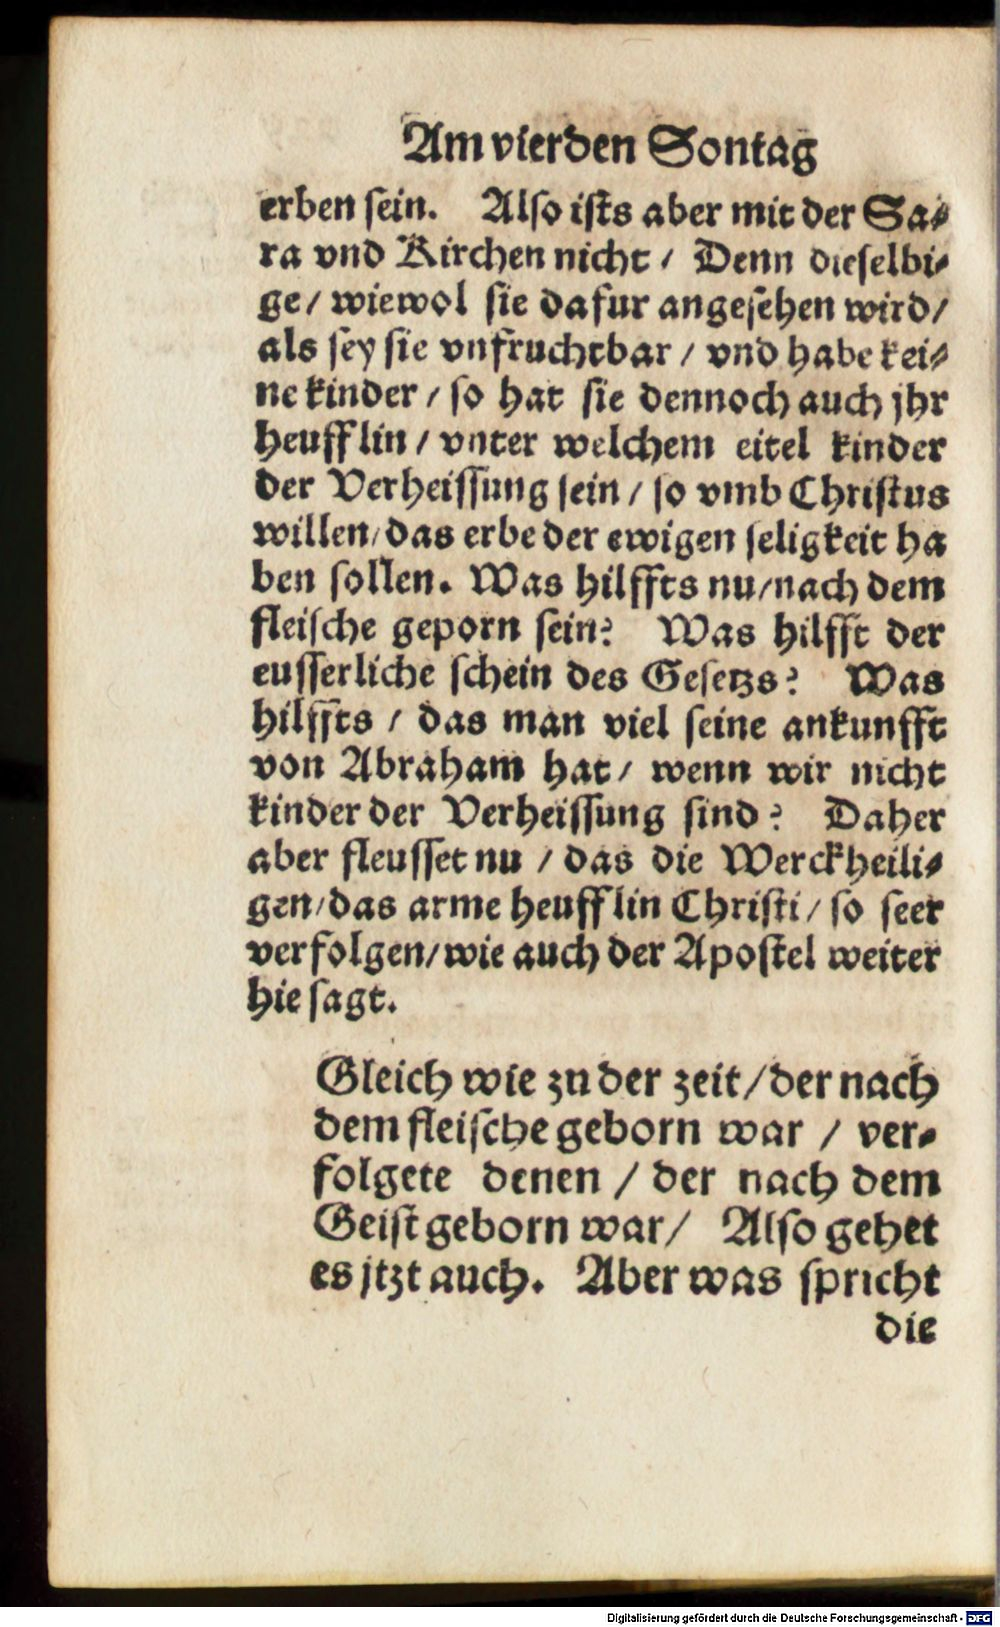 Am vierden Sontag
erben sein. Also ists aber mit der Sa-
ra vnd Kirchen nicht / Denn dieselbi-
ge / wiewol sie dafur angesehen wird /
als sey sie vnfruchtbar / vnd habe kei-
ne kinder / so hat sie dennoch auch jhr
heufflin / vnter welchem eitel kinder
der Verheissung sein / so vmb Christus
willen / das erbe der ewigen seligkeit ha
ben sollen. Was hilffts nu / nach dem
fleische geporn sein? Was hilfft der
eusserliche schein des Gesetzs? Was
hilffts / das man viel seine ankunfft
von Abraham hat / wenn wir nicht
kinder der Verheissung sind? Daher
aber fleusset nu / das die Werckheili-
gen / das arme heufflin Christi / so seer
verfolgen / wie auch der Apostel weiter
hie sagt.
Gleich wie zu der zeit / der nach
dem fleische geborn war / ver-
folgete denen / der nach dem
Geist geborn war / Also gehet
es jtzt auch. Aber was spricht
die
Digitalisierung gefördert durch die Deutsche Forschungsgemeinschaft - DFG